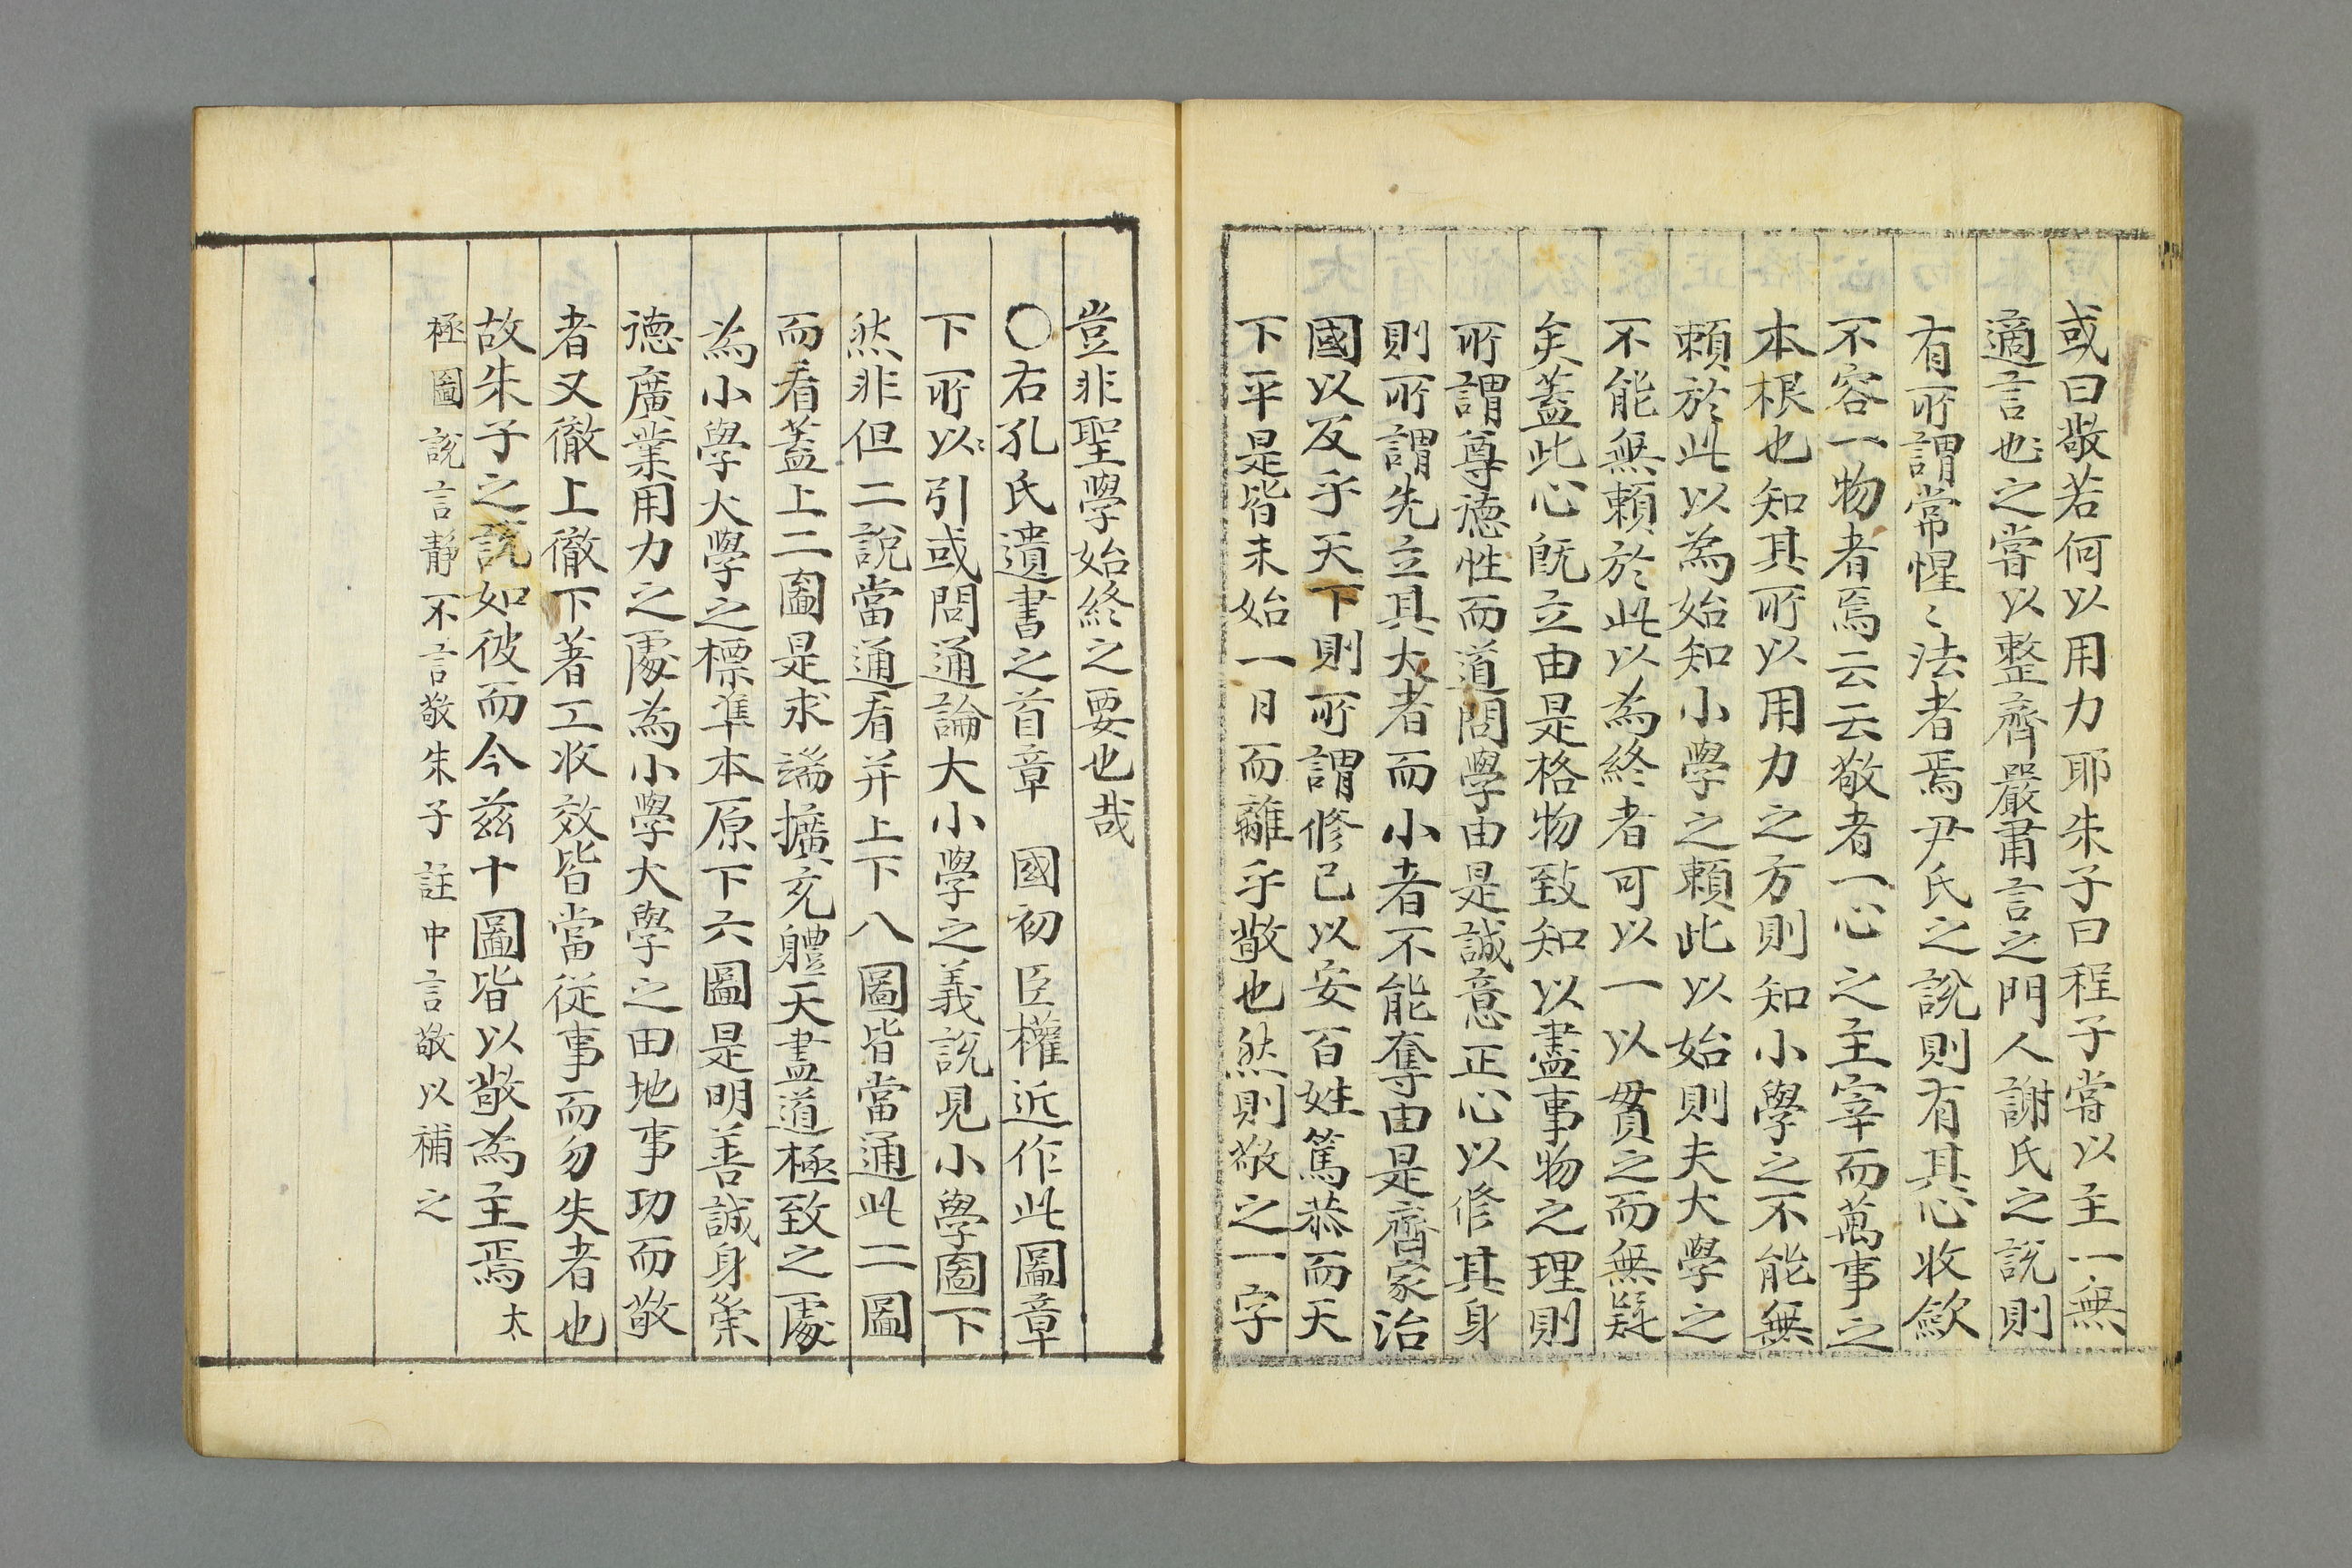 或曰敬若何以用力耶朱子曰程子嘗以主一無
適言也之嘗以整齊嚴肅言之門人謝氏之說則
有所謂常惺〻法者焉尹氏之說則有其心收歛
不容一物者焉云云敬者一心之主宰而萬事之
本根也知其所以用力之方則知小學之不能無
賴於此以為始知小學之賴此以始則夫大學之
不能無賴於此以為終者可以一以貫之而無疑
矣蓋此心旣立由是格物致知以盡事物之理則
所謂尊德性而道問學由是誠意正心以修其身
則所謂先立其大者而小者不能奪由是齊家治
國以及乎天下則所謂修己以安百姓篤恭而天
下平是皆未始一日而離乎敬也然則敬之一字
豈非聖學始終之要也哉
〇右孔氏遺書之首章 國初臣權近作此圖章
下所以〻引或問通論大小學之義說見小學圖下
然非但二說當通看并上下八圖皆當通此二圖
而看蓋上二圖是求端擴充體天盡道極致之處
為小學大學之標準本原下六圖是明善誠身崇
德廣業用力之處為小學大學之田地事功而敬
者又徹上徹下著工收效皆當從事而勿失者也
故朱子之說如彼而今茲十圖皆以敬為主焉太
極圖說言靜不言敬朱子註中言敬以補之